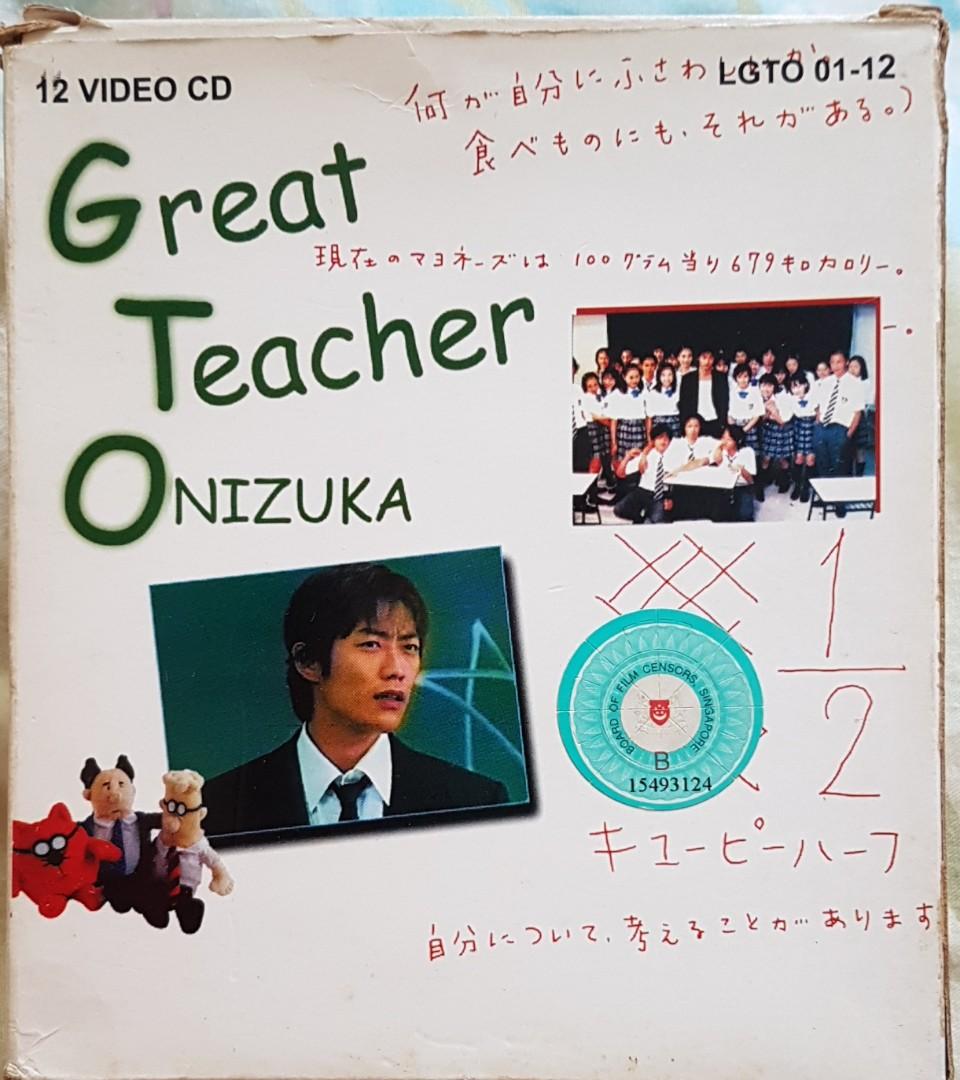 12 VIDEO CD
LGTO 01-12
何が自分にふさわ
食べものにも、それがある。)
Great
現在のマヨネーズは 100グラム当り679キロカロリー。
Teacher
ー。
ONIZUKA
1
2
BOARD OF FILM CENSORS, SINGAPORE
B
15493124
キユーピーハーフ
自分について、考えることがあります